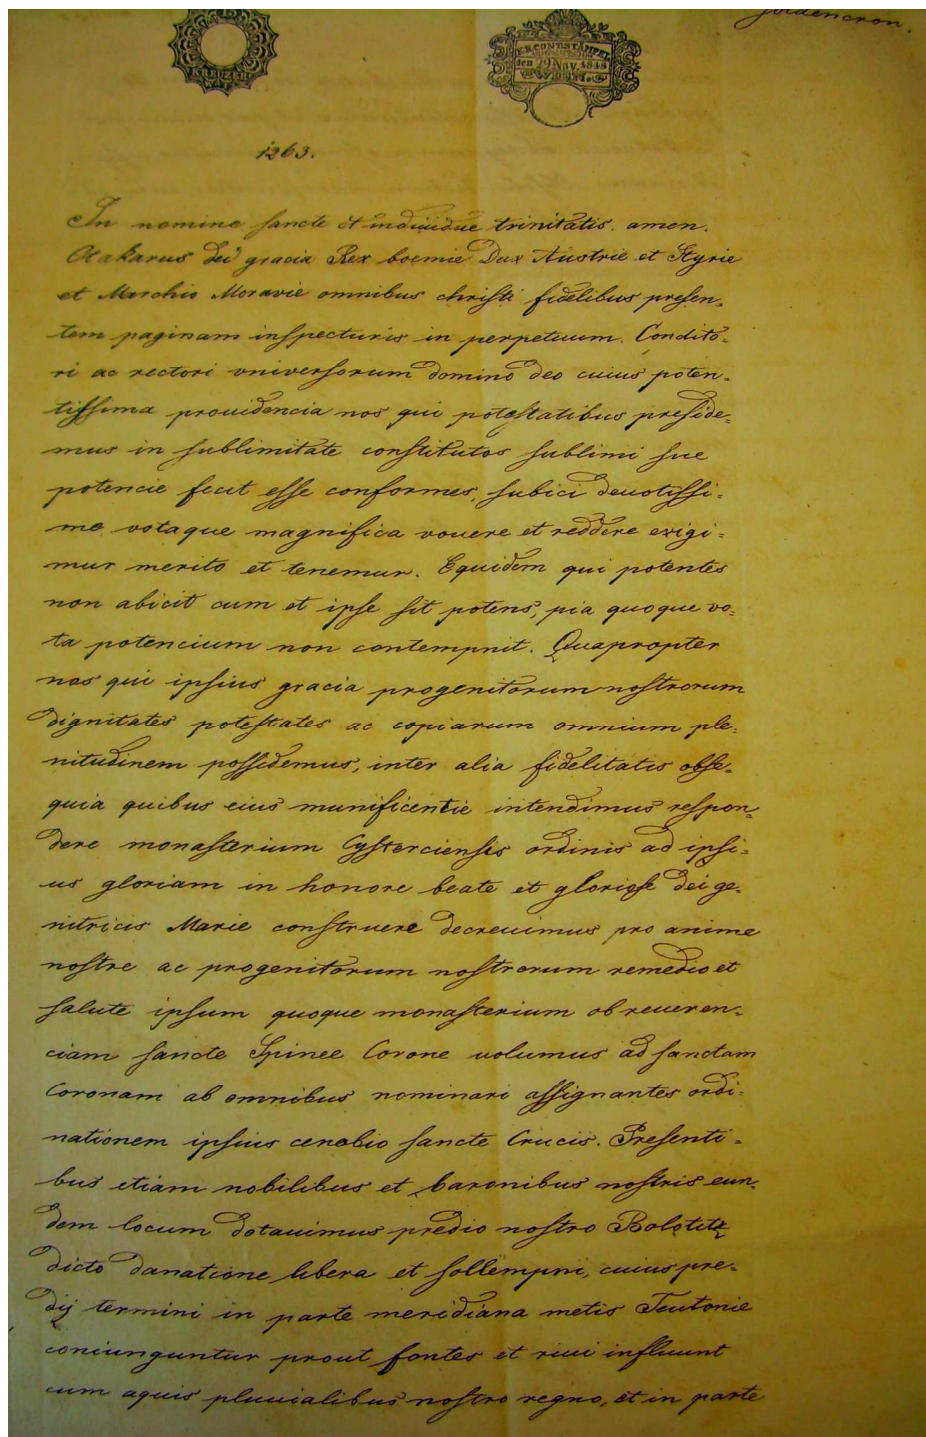 Goldencron.
KREUZER
den 29 Nov. 1848
1263.
In nomine sancte et individue trinitatis. amen.
Otakarus dei gracia Rex boemie Dux Austrie et Styrie
et Marchio Moravie omnibus christi fidelibus presen=
tem paginam inspecturis in perpetuum. Condito=
ri ac rectori vniversorum domino deo cuius poten=
tissima prouidencia nos qui potestatibus preside=
mus in sublimitate constitutos sublimi sue
potencie fecit esse conformes, subici deuotissi=
me votaque magnifica vouere et reddere exigi=
mur merito et tenemur. Equidem qui potentes
non abicit cum et ipse sit potens, pia quoque vo=
ta potencium non contempnit. Quapropter
nos qui ipsius gracia progenitorum nostrorum
dignitates potestates ac copiarum omnium ple=
nitudinem possidemus, inter alia fidelitatis obse=
quia quibus eius munificentie intendimus respon=
dere monasterium Cysterciensis ordinis ad ipsi=
us gloriam in honore beate et gloriose dei ge=
nitricis Marie construere decreuimus pro anime
nostre ac progenitorum nostrorum remedio et
salute ipsum quoque monasterium ob reueren=
ciam sancte Spinee Corone uolumus ad sanctam
Coronam ab omnibus nominari assignantes ordi=
nationem ipsius cenobio sancte Crucis. Presenti=
bus etiam nobilibus et baronibus nostris eun=
dem locum dotauimus predio nostro Bolotitz
dicto donatione libera et sollempni, cuius pre=
dij termini in parte meridiana metis Teutonie
coniunguntur prout fontes et riui influunt
cum aquis pluuialibus nostro regno, et in parte